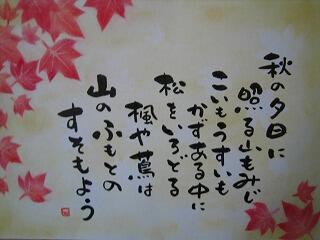 秋の夕日に
照る山もみじ
こいもうすいも
かずある中に
松をいろどる
楓や蔦は
山のふもとの
すそもよう